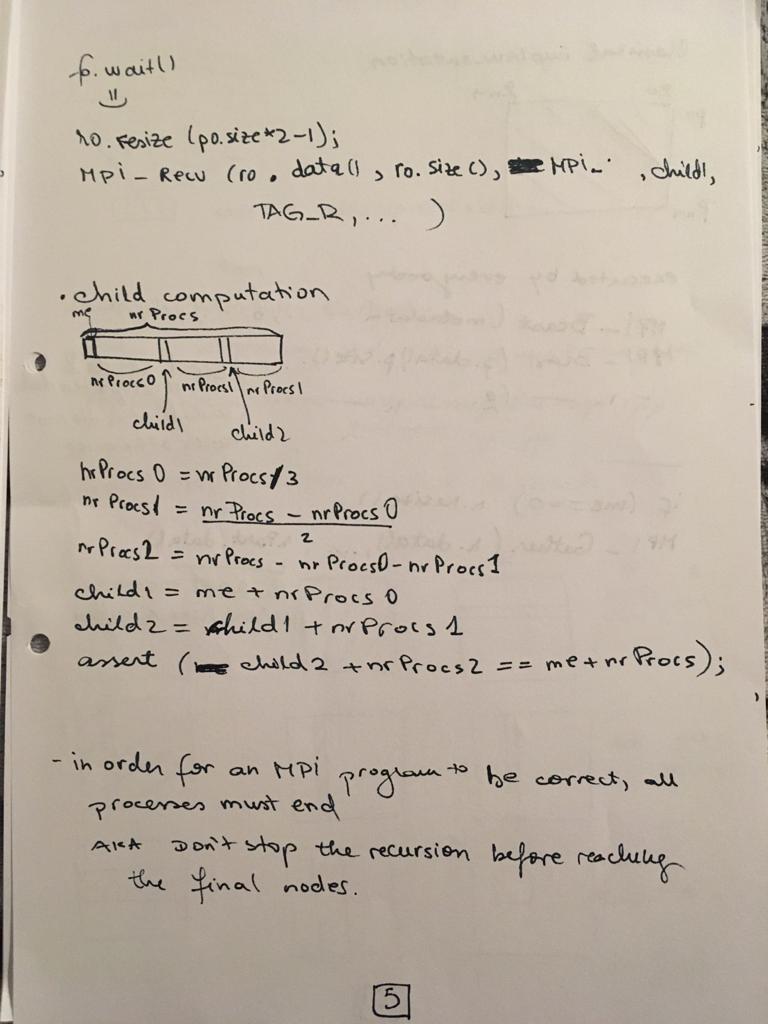 f.wait()
r0.resize (p0.size*2-1);
MPi_Recv (r0.data(), r0.size(), MPi_. , child1,
TAG_R, ... )
. child computation
me nr Procs
nrProcs0 nrProcs1 nrProcs1
child1 child2
nrProcs 0 = nrProcs/3
nr Procs1 = nr Procs - nrProcs 0
2
nrProcs2 = nrProcs - nr Procs0 - nrProcs1
child1 = me + nrProcs 0
child2 = child1 + nrProcs 1
assert ( child2 + nrProcs2 == me + nrProcs);
- in order for an MPi program to be correct, all
processes must end
AKA Don't stop the recursion before reaching
the final nodes.
5